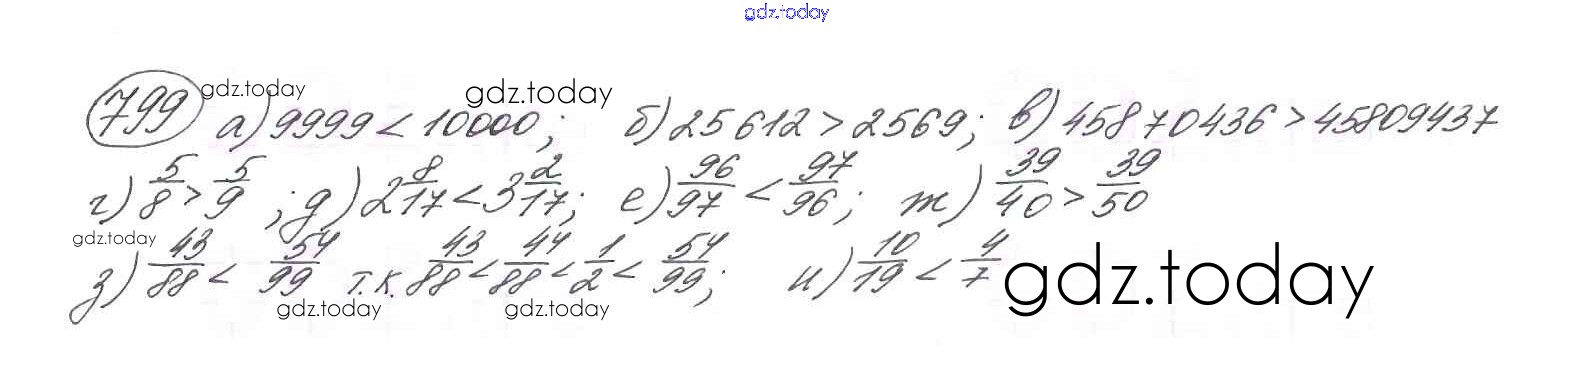 gdz.today
799 gdz.today а) 9999 < 10000; gdz.today б) 25612 > 2569; в) 45870436 > 45809437
г) 5/8 > 5/9; д) 2 8/17 < 3 2/17; е) 96/97 < 97/96; ж) 39/40 > 39/50
gdz.today
з) 43/88 < 54/99 т.к. 43/88 < 44/88 < 1/2 < 54/99; и) 10/19 < 4/7 gdz.today
gdz.today gdz.today